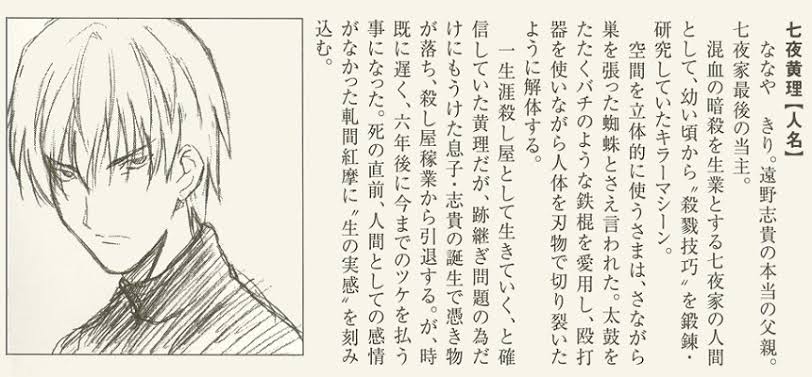 七夜黄理【人名】
ななや　きり。遠野志貴の本当の父親。
七夜家最後の当主。
混血の暗殺を生業とする七夜家の人間
として、幼い頃から〝殺戮技巧〟を鍛錬・
研究していたキラーマシーン。
空間を立体的に使うさまは、さながら
巣を張った蜘蛛とさえ言われた。太鼓を
たたくバチのような鉄棍を愛用し、殴打
器を使いながら人体を刃物で切り裂いた
ように解体する。
一生涯殺し屋として生きていく、と確
信していた黄理だが、跡継ぎ問題の為だ
けにもうけた息子・志貴の誕生で憑き物
が落ち、殺し屋稼業から引退する。が、時
既に遅く、六年後に今までのツケを払う
事になった。死の直前、人間としての感情
がなかった軋間紅摩に〝生の実感〟を刻み
込む。